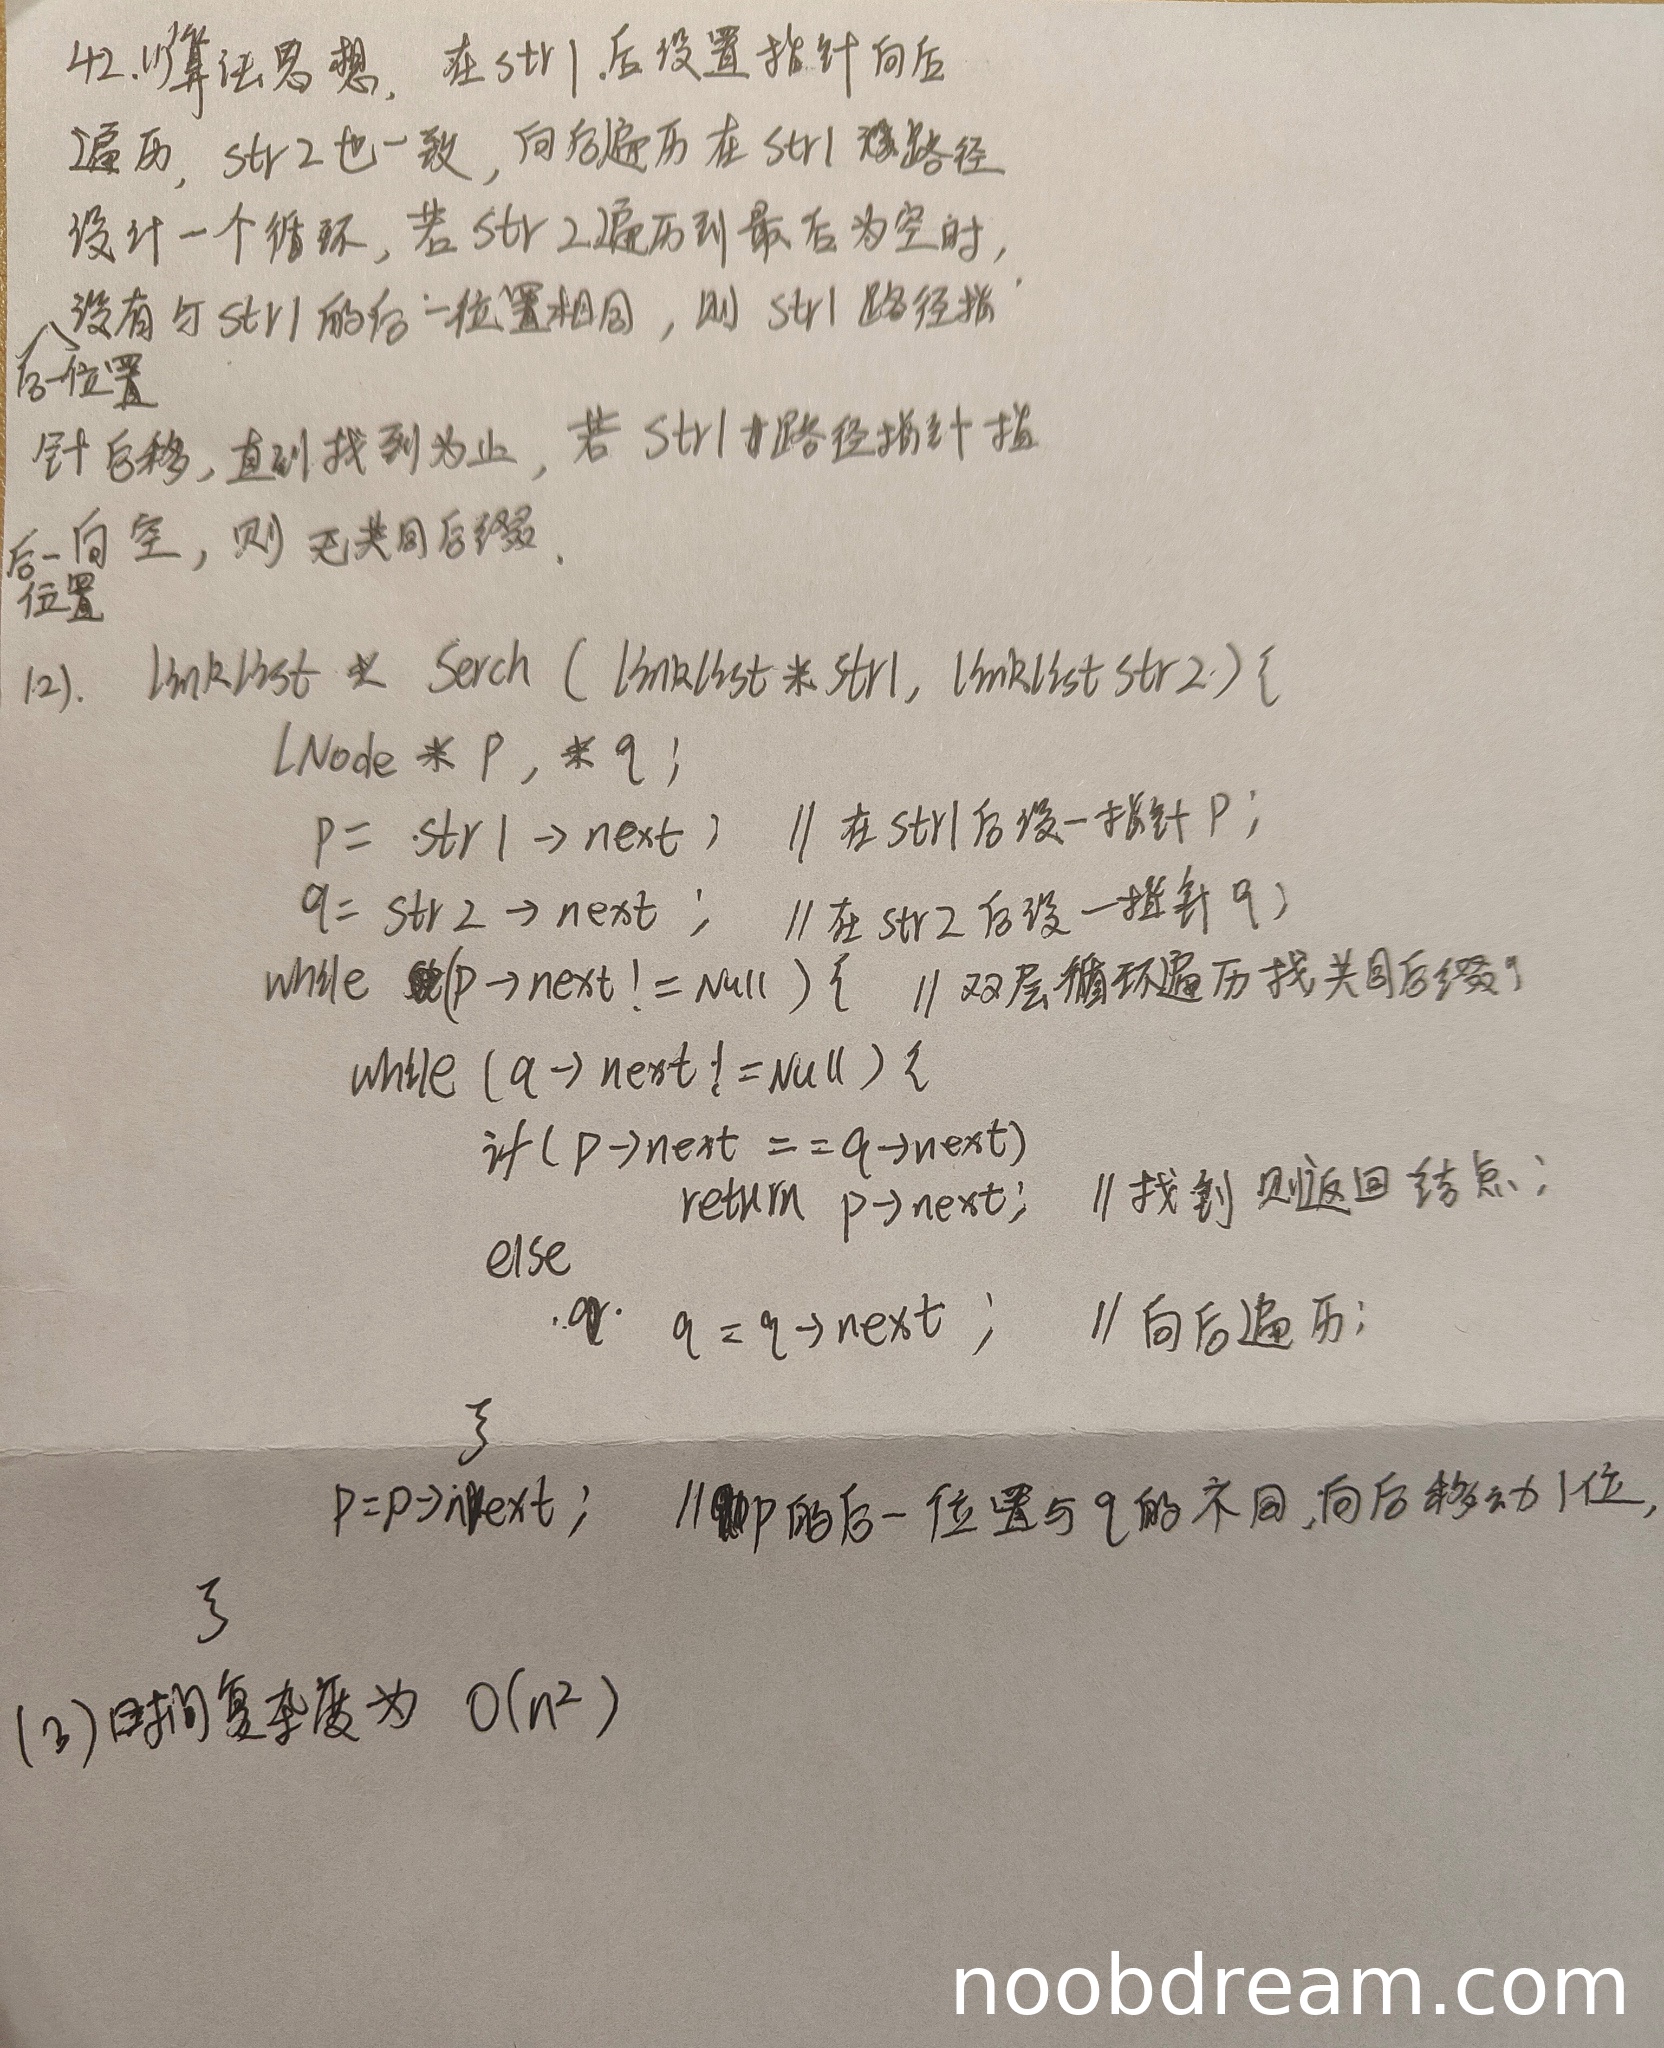 42.(1)算法思想, 在str1后设置指针向后
遍历, str2也一致, 向后遍历在str1 路径
设计一个循环, 若str2遍历到最后为空时,
没有与str1的后一位置相同, 则 str1 路径指
后一位置
针后移, 直到找到为止, 若 str1 路径指针指
后一向空, 则无共同后缀.
位置
(2). linklist * Serch ( linklist * str1, linklist str2 ) {
LNode * p , * q ;
p = str1 -> next ; // 在str1后设一指针p;
q = str2 -> next ; // 在str2后设一指针q;
while (p -> next != Null ) { // 双层循环遍历找共同后缀;
while ( q -> next != Null ) {
if ( p -> next == q -> next )
return p -> next ; // 找到则返回结点;
else
q = q -> next ; // 向后遍历;
}
p = p -> next ; // p的后一位置与q的不同,向后移动1位,
}
(3) 时间复杂度为 O(n²)
noobdream.com